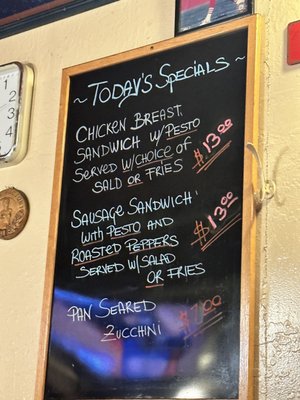 ~ TODAY'S SPECIALS ~
CHICKEN BREAST
SANDWICH W/PESTO
SERVED W/CHOICE OF
SALD OR FRIES
$13.00
SAUSAGE SANDWICH
WITH PESTO AND
ROASTED PEPPERS
SERVED W/SALAD
OR FRIES
$13.00
PAN SEARED
ZUCCHINI
1
2
3
4